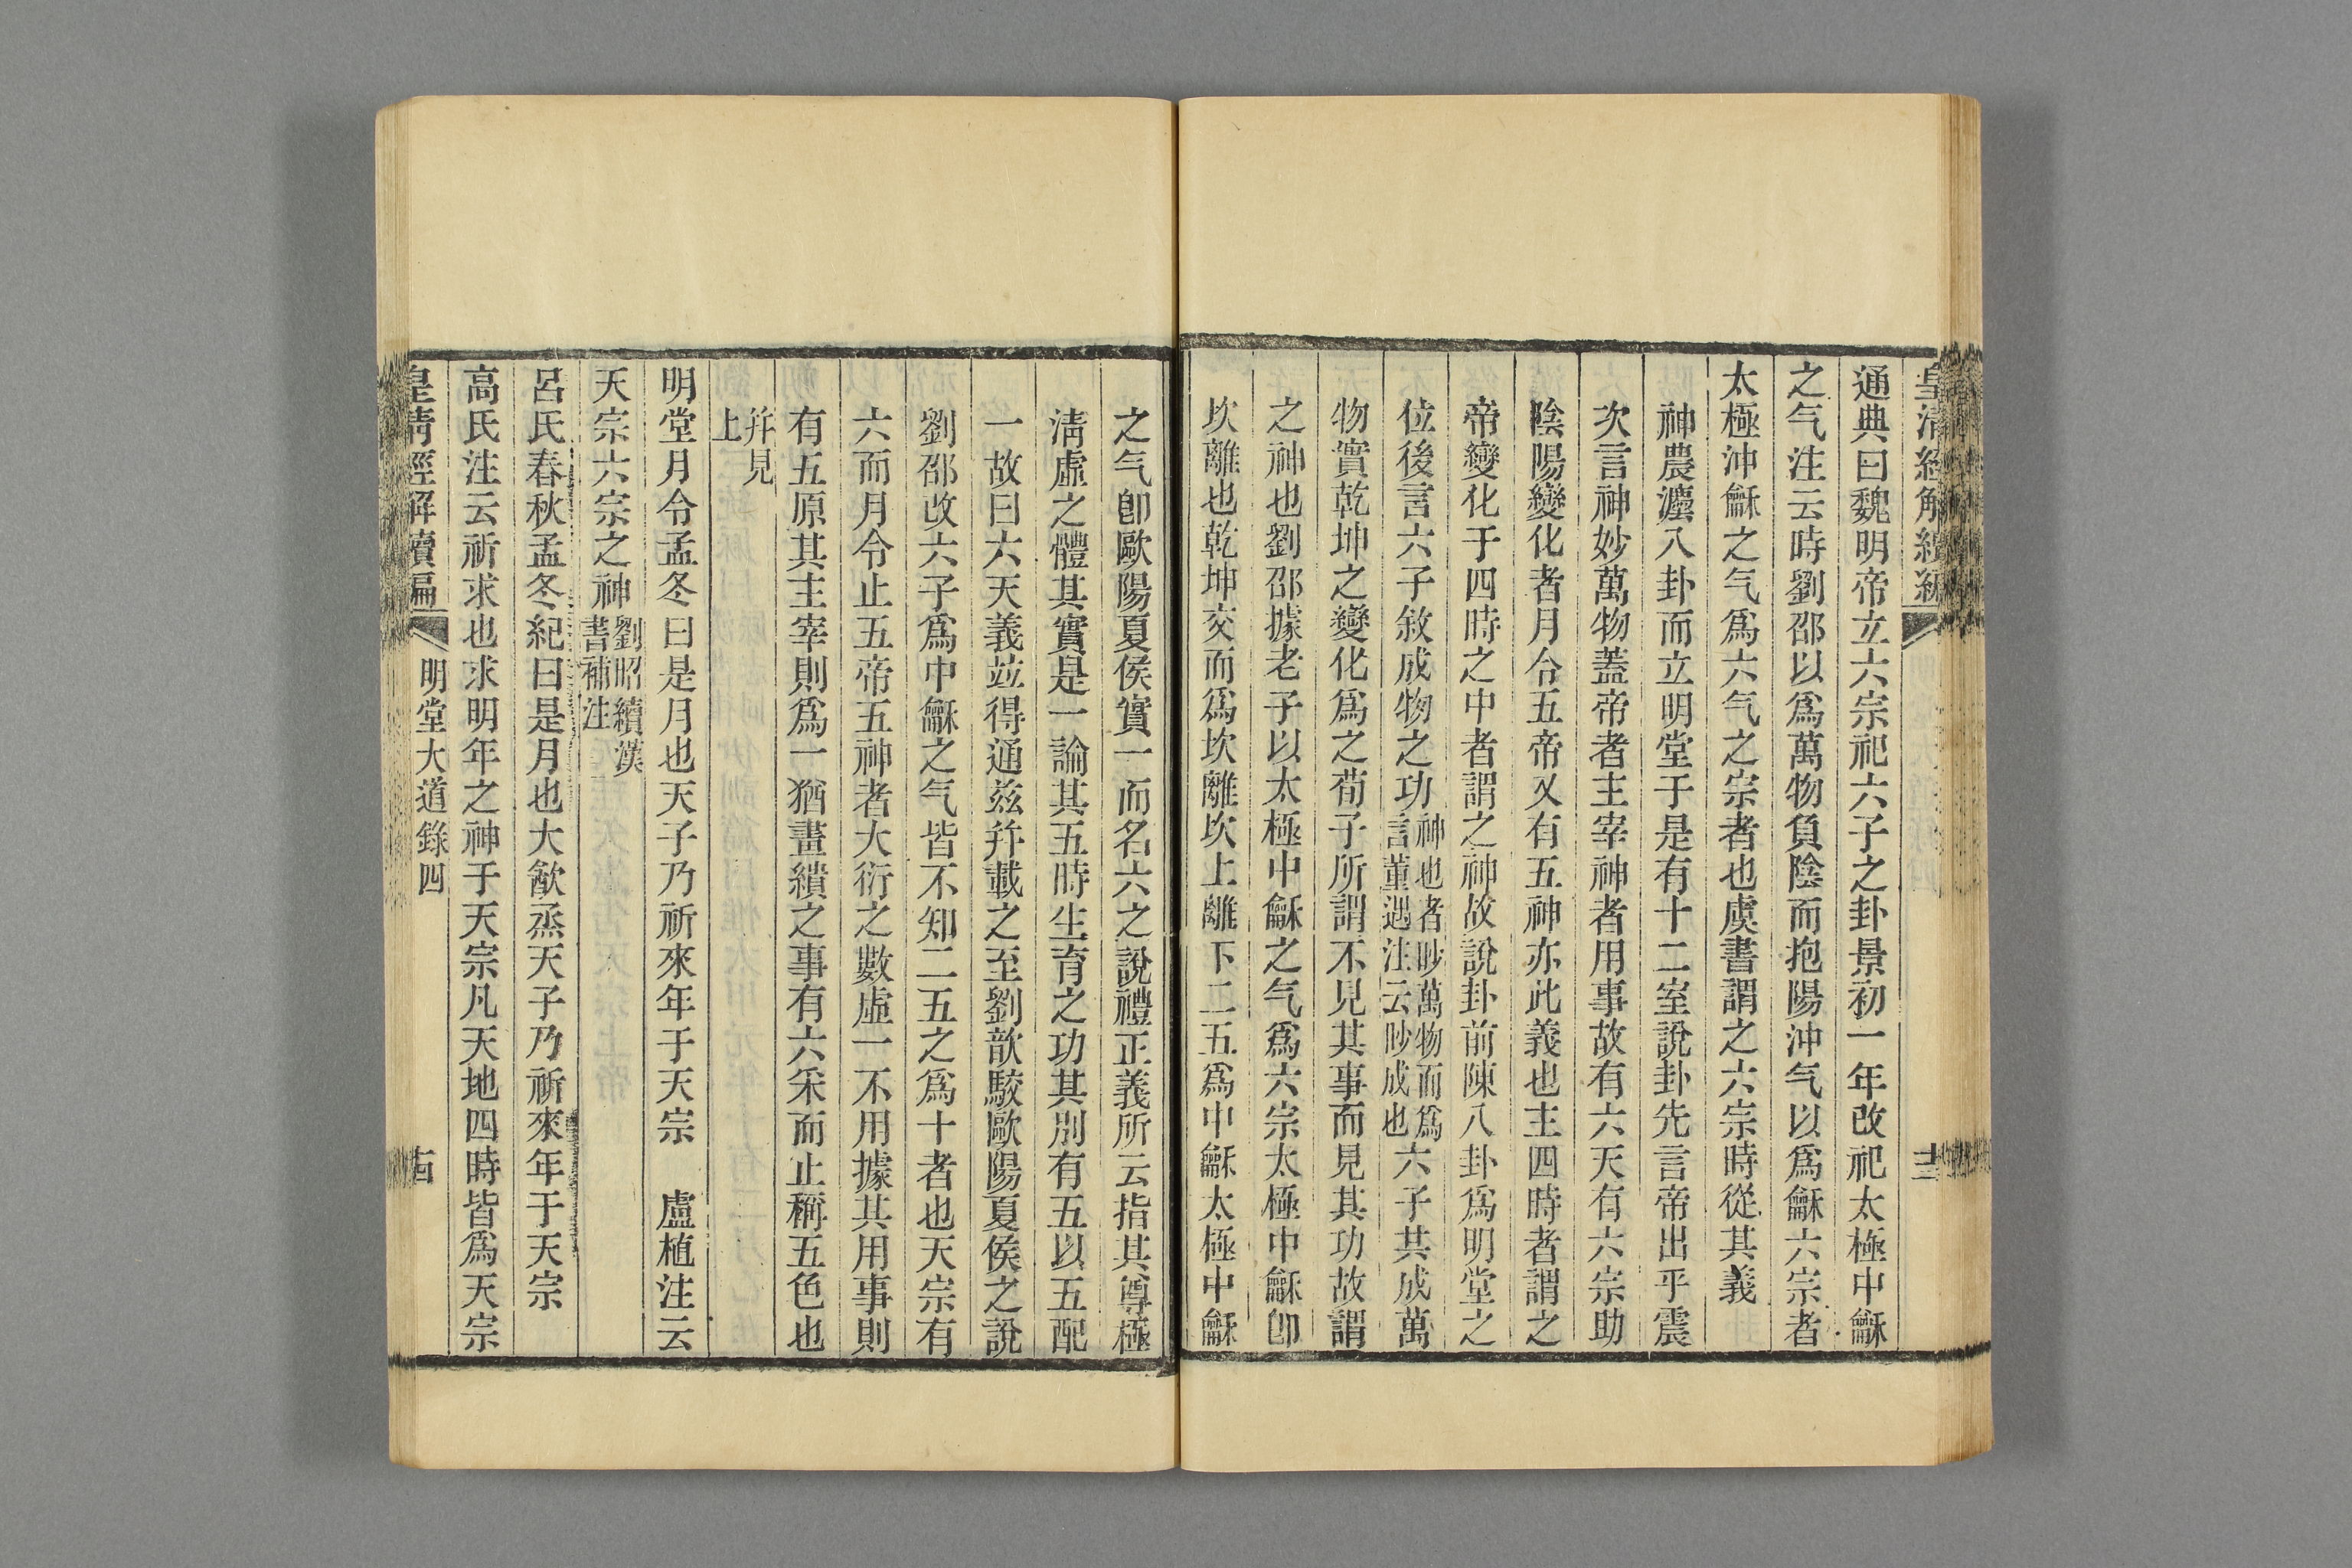 皇清經解續編
十三
通典曰魏明帝立六宗祀六子之卦景初一年改祀太極中龢
之气注云時劉邵以爲萬物負陰而抱陽沖气以爲龢六宗者
太極沖龢之气爲六气之宗者也虞書謂之六宗時從其義
神農灋八卦而立明堂于是有十二室說卦先言帝出乎震
次言神妙萬物蓋帝者主宰神者用事故有六天有六宗助
陰陽變化者月令五帝又有五神亦此義也主四時者謂之
帝變化于四時之中者謂之神故說卦前陳八卦爲明堂之
位後言六子敘成物之功神也者眇萬物而爲言董遇注云眇成也六子共成萬
物實乾坤之變化爲之荀子所謂不見其事而見其功故謂
之神也劉邵據老子以太極中龢之气爲六宗太極中龢卽
坎離也乾坤交而爲坎離坎上離下二五爲中龢太極中龢
之气卽歐陽夏侯實一而名六之說禮正義所云指其尊極
淸虛之體其實是一論其五時生育之功其別有五以五配
一故曰六天義竝得通兹幷載之至劉歆駮歐陽夏侯之說
劉邵改六子爲中龢之气皆不知二五之爲十者也天宗有
六而月令止五帝五神者大衍之數虛一不用據其用事則
有五原其主宰則爲一猶畫繢之事有六采而止稱五色也
幷見
上
明堂月令孟冬曰是月也天子乃祈來年于天宗　盧植注云
天宗六宗之神劉昭續漢書補注
呂氏春秋孟冬紀曰是月也大飮烝天子乃祈來年于天宗
高氏注云祈求也求明年之神于天宗凡天地四時皆爲天宗
皇清經解續編
明堂大道錄四
十四